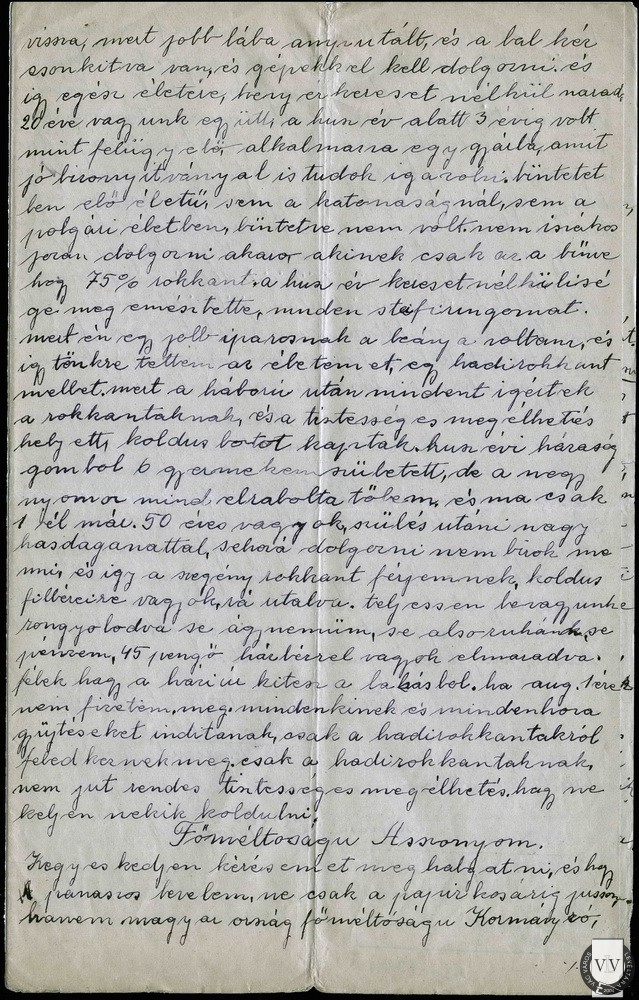 vissza, mert jobb lába anyiutált, és a bal kéz
csonkitva van, és gépekkel kell dolgozni. és
ig egész életére, keny er kereset nélkül marad,
20 éve vagyunk együtt, a husz év alatt 3 évig volt
mint felügyelő, alkalmazva egy gyárba, amit
jó bizonyitványal is tudok igazolni. büntetet
ben elő életü, sem a katonaságnál, sem a
polgári életben, büntetve nem volt. nem iszákos
józan dolgozni akaró akinek csak az a büne
hogy 75% rokkant. a husz év kereset nélkülisé
ge meg emésztette, minden stafirungomat.
mert én egy jobb iparosnak a leánya voltam, és
ig tönkre tettem az életemet, eg hadirokkant
mellet. mert a háború után mindent igértek
a rokkantaknak, és a tisteség es megélhetés
helyett, koldus botot kaptak. husz évi házaság
gombol 6 gyermekem született, de a nagy
nyomor mind elrabolta tőlem. és ma csak
1 él már. 50 éves vagyok, szülés utáni nagy
hasdaganattal, sehová dolgozni nem birok me
nni, és igy a szegény rokkant férjemnek, koldus
filléreire vagyok, rá utalva. teljessen le vagyunk
rongyolodva se ágynemüm, se alsoruhánk, se
pénzem, 45 pengő házbérrel vagyok elmaradva.
félek hogy a háziúr kitesz a lakásbol. ha aug. 1 ére
nem fizetem, meg. mindenkinek és mindenhova
gyüjtéseket inditanak, csak a hadirokkantakról
feledkeznek meg. csak a hadirokkantaknak,
nem jut rendes tisteséges megélhetés. hogy ne
keljen nekik koldulni.
Főméltóságu Asszonyom.
Kegyeskedjen kérésemet meghalgatni, és hogy
panaszos levelem, ne csak a papir kosárig jusson
hanem magyar ország főméltóságu Kormányzó,